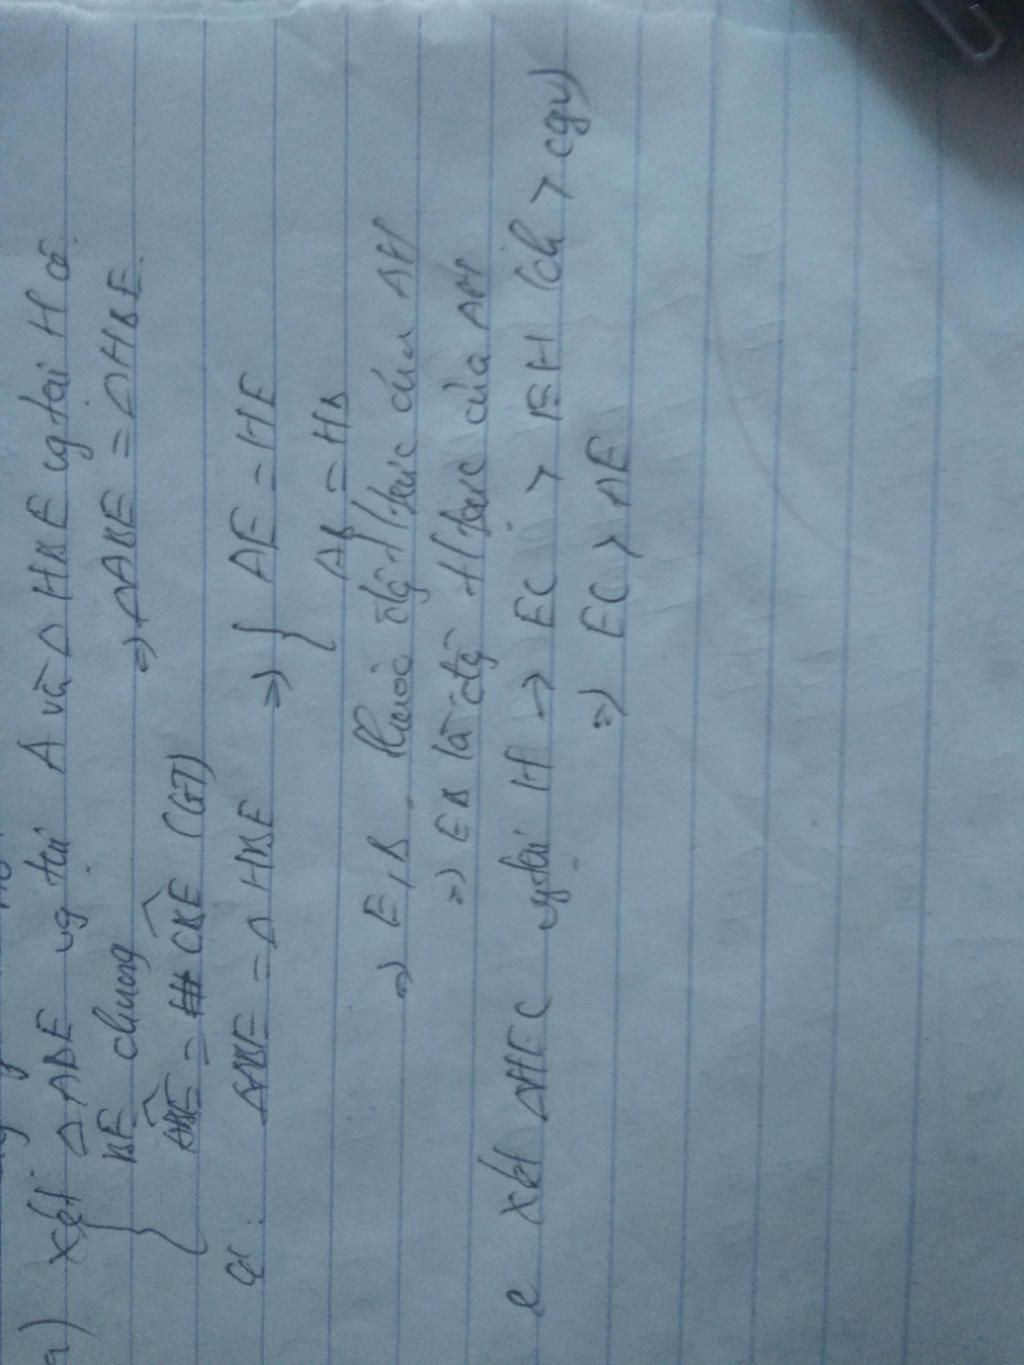 a) xét Δ ABE vg tại A và Δ HBE vg tại H có
BE chung
ABE = CBE (GT)
=) ΔABE = ΔHBE.
ΔABE = Δ HBE =) { AE = HE
AB = HB
=) E, B thuộc đg t/trực của AH
=) EB là đg t/trực của AH
e xét ΔHEC vg tại H → EC > EH (ch > cgv)
=) EC > AE